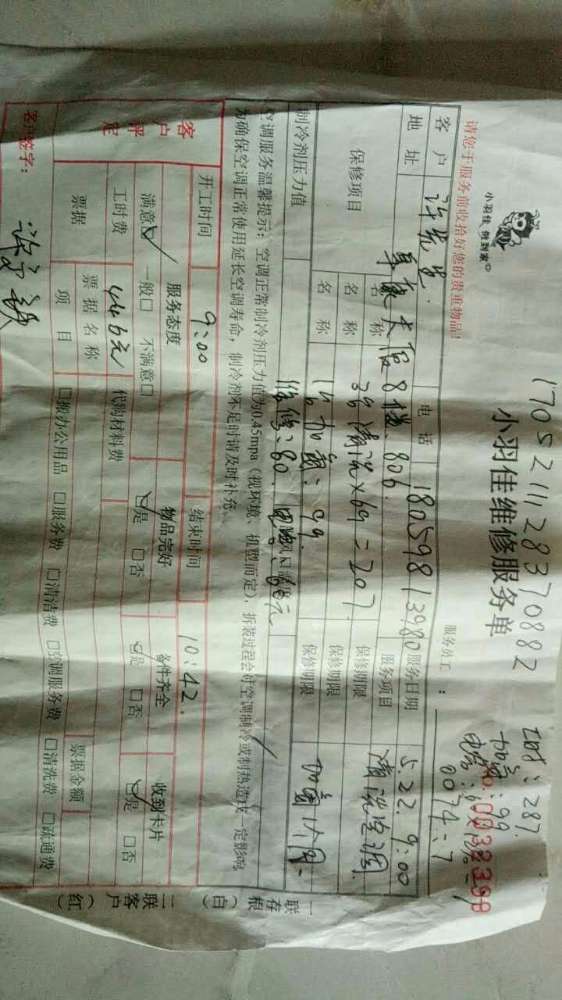 1705211128370882
小羽佳 做到家
小羽佳维修服务单
工时：287.
加氟：99
0074-7
0032398
请您于服务前收拾好您的贵重物品！
服务员工：
客户 许先生 电话 18059813980 服务日期 5.22. 9:00
地址 8楼 806 服务项目 清洗空调
保修项目 名称 3台清洗×69=207. 保修期限
名称 加氟：99 保修期限
名称 保修期限 加氟1个月.
制冷剂压力值 维修：80.
空调服务温馨提示：空调正常制冷剂压力值为0.45mpa（视环境、机型而定）拆装过程会对空调制冷或制热造成一定影响
为确保空调正常使用延长空调寿命，制冷剂不足时请及时补充、
客户评定
开工时间 9:00 结束时间 10:42.
服务态度 物品完好 备件齐全 收到卡片
满意☑ 一般□ 不满意□ ☑是 □否 ☑是 □否 ☑是 □否
工时费 446元 代购材料费
票据 票据名称 票据金额
项目 □搬办公用品 □服务费 □清洁费 □空调服务费 □清洗费 □疏通费
客户签字：
一联存根（白） 二联客户（红）